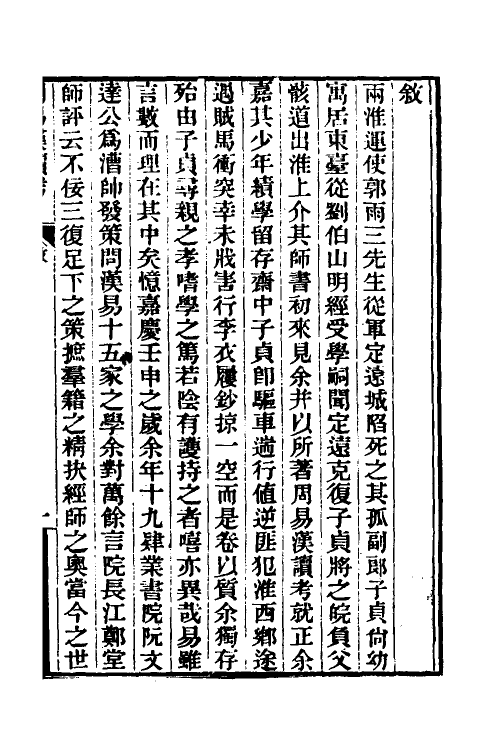 敘
兩淮運使郭雨三先生從軍定遠城陷死之其孤副郎子貞尙幼
寓居東臺從劉伯山明經受學嗣聞定遠克復子貞將之皖負父
骸道出淮上介其師書初來見余并以所著周易漢讀考就正余
嘉其少年績學留存齋中子貞卽驅車遄行値逆匪犯淮西鄉途
遇賊馬衝突幸未戕害行李衣履鈔掠一空而是卷以質余獨存
殆由子貞尋親之孝嗜學之篤若陰有護持之者嘻亦異哉易雖
言數而理在其中矣憶嘉慶壬申之歲余年十九肄業書院阮文
達公爲漕帥發策問漢易十五家之學余對萬餘言院長江鄭堂
師評云不佞三復足下之策摭羣籍之精抉經師之奧當今之世
周易漢讀考
敘
一